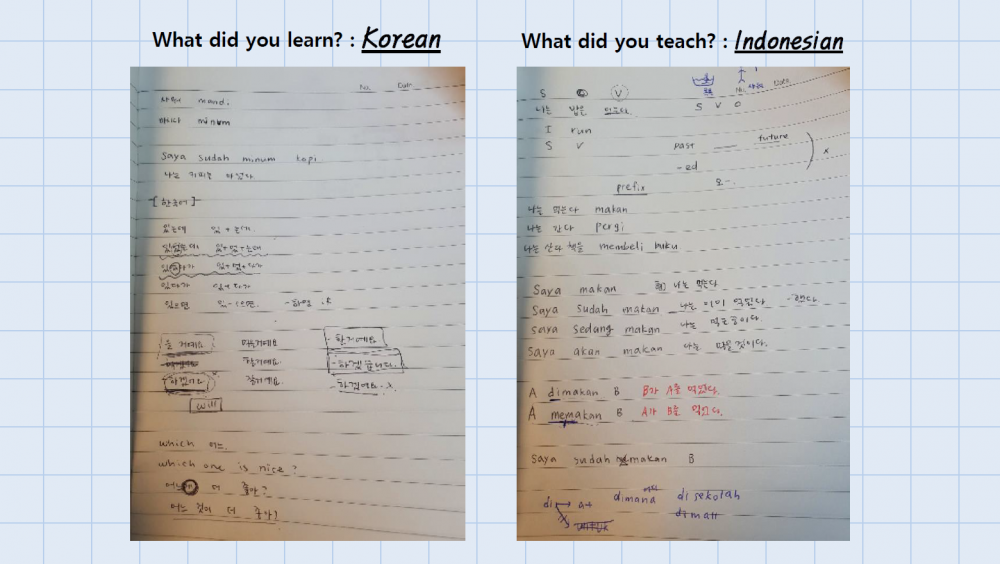 What did you learn? : Korean
No. Date
샤워 mandi
마시다 minum
Saya sudah minum kopi
나는 커피를 마셨다
[한국어]
있는데 있 + 는데.
있다가 있+다가
있으면 있-으면.
할거에요
하겠어요
will
which 어느
which one is nice?
더 좋아?
어느 것이 더 좋아?
What did you teach? : Indonesian
Date
S O V
나는 밥을 먹는다.
S V O
I run
S V
past future
-ed
x
prefix
나는 먹는다 makan
나는 간다 pergi
나는 산다 책을 membeli buku
Saya makan 나는 먹는다
Saya sudah makan 나는 이미 먹었다
Saya sedang makan 나는 먹는중이다.
Saya akan makan 나는 먹을것이다.
A dimakan B B가 A를 먹었다.
A memakan B A가 B를 먹었다.
Saya sudah memakan B
di → at dimana di sekolah